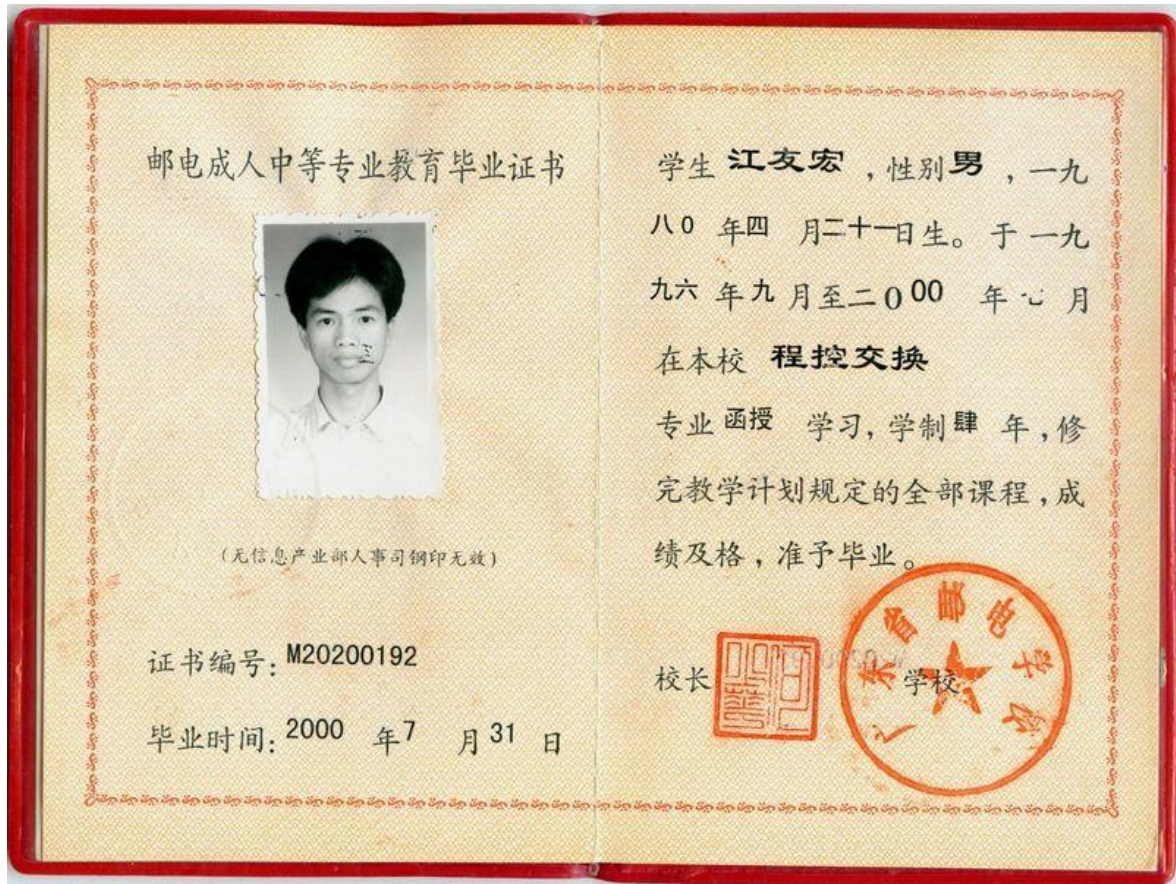 邮电成人中等专业教育毕业证书
(无信息产业部人事司钢印无效)
证书编号: M20200192
毕业时间: 2000 年 7 月 31 日
学生 江友宏 , 性别 男 , 一九
八0 年四 月二十一日生。于一九
九六 年九 月至二000 年 月
在本校 程控交换
专业 函授 学习, 学制 肆 年 , 修
完教学计划规定的全部课程 , 成
绩及格 , 准予毕业。
校长 学校
广东省邮电学校